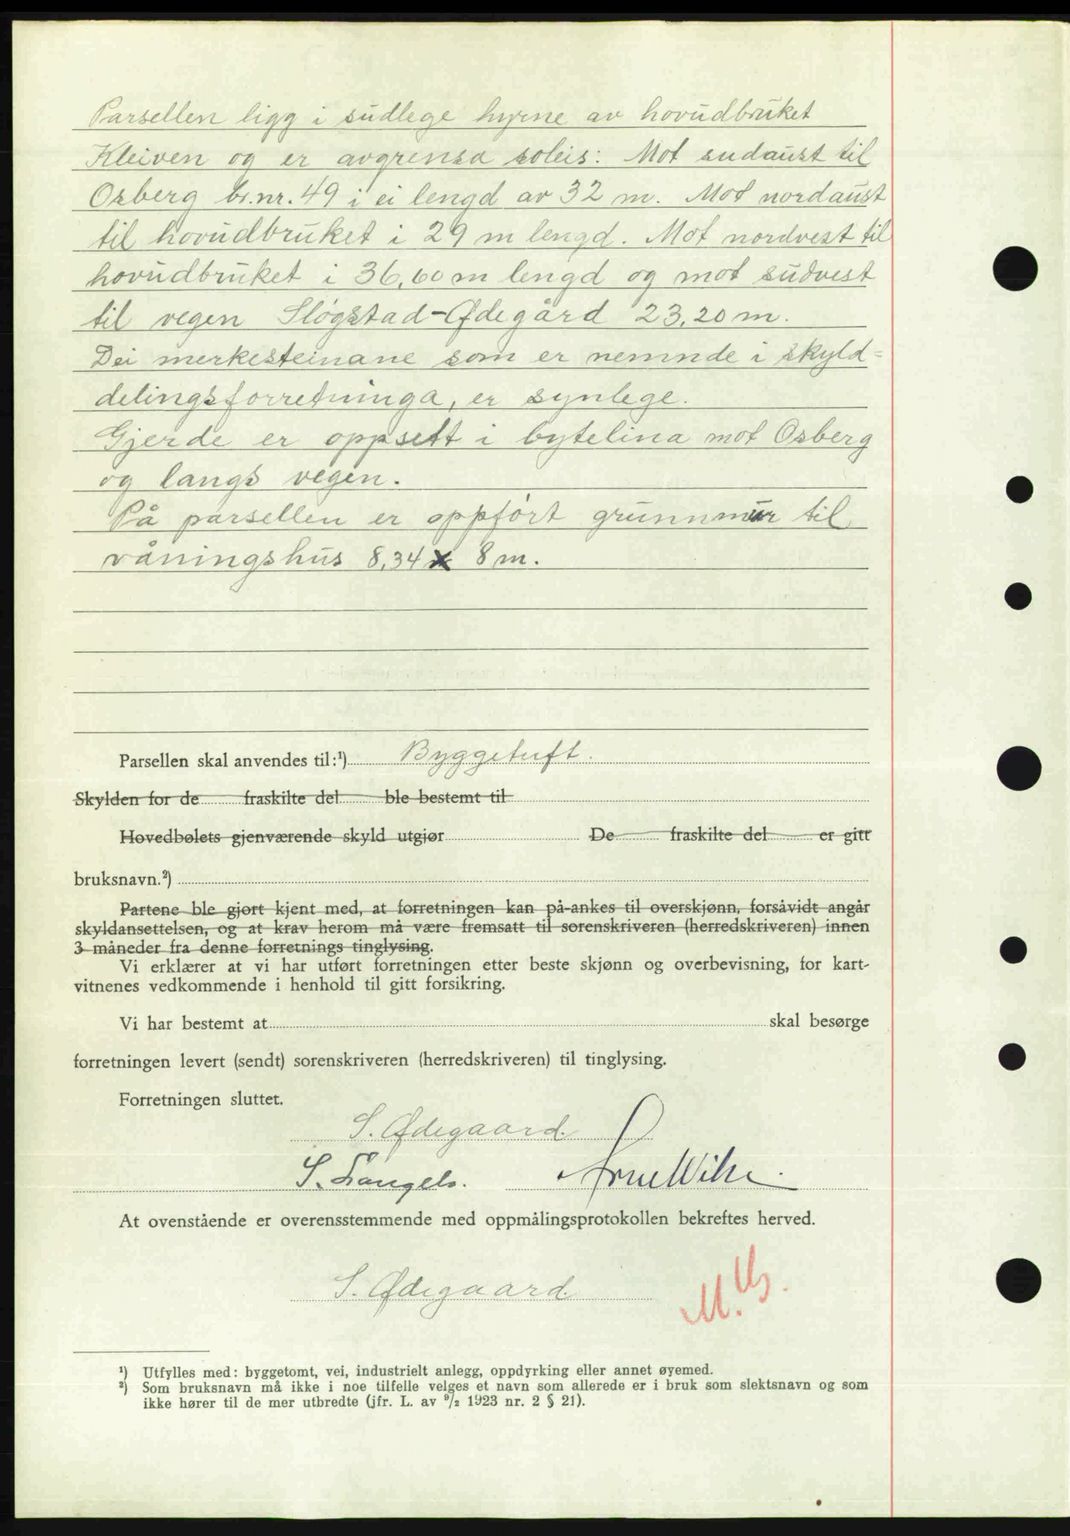 Parsellen ligg i südlege hyrne av hovüdbrüket
Kleiven og er avgrensa soleis: Mot südaust til
Osberg br.nr. 49 i ei lengd av 32 m. Mot nordaust
til hovüdbrüket i 29 m lengd. Mot nordvest til
hovüdbrüket i 36,60 m lengd og mot südvest
til vegen Sløgstad-Ødegård 23,20 m.
Dei merkesteinane som er nemnde i skyld=
delingsforretninga, er synlege.
Gjerde er oppsett i bytelina mot Osberg
og langs vegen.
På parsellen er oppført grünnmür til
våningshüs 8,34 x 8 m.
Parsellen skal anvendes til:¹) Byggetuft.
Skylden for de fraskilte del ble bestemt til
Hovedbølets gjenværende skyld utgjør De fraskilte del er gitt
bruksnavn.²)
Partene ble gjort kjent med, at forretningen kan på-ankes til overskjønn, forsåvidt angår
skyldansettelsen, og at krav herom må være fremsatt til sorenskriveren (herredskriveren) innen
3 måneder fra denne forretnings tinglysing.
Vi erklærer at vi har utført forretningen etter beste skjønn og overbevisning, for kart-
vitnenes vedkommende i henhold til gitt forsikring.
Vi har bestemt at skal besørge
forretningen levert (sendt) sorenskriveren (herredskriveren) til tinglysing.
Forretningen sluttet.
S. Ødegaard.
S. Langelo. Arne Wike.
At ovenstående er overensstemmende med oppmålingsprotokollen bekreftes herved.
S. Ødegaard.
¹) Utfylles med: byggetomt, vei, industrielt anlegg, oppdyrking eller annet øyemed.
²) Som bruksnavn må ikke i noe tilfelle velges et navn som allerede er i bruk som slektsnavn og som
ikke hører til de mer utbredte (jfr. L. av ⁹/₂ 1923 nr. 2 § 21).